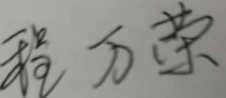 程万荣